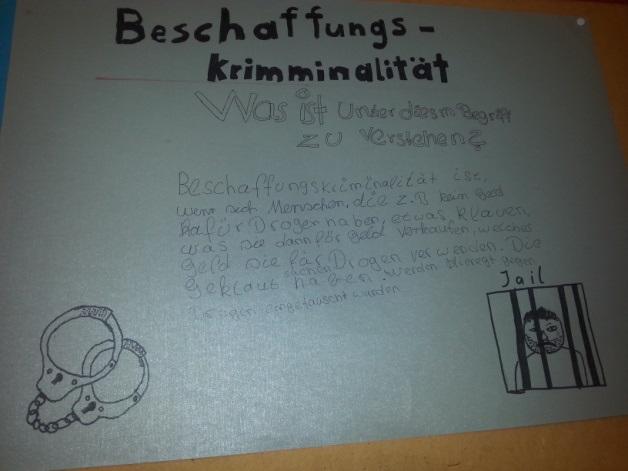 Beschaffungs-
krimminalität
Was ist unter diesem Begriff
zu verstehen?
Beschaffungskriminalität ist,
wenn sich Menschen, die z.B kein Geld
dafür Drogen haben, etwas klauen,
was sie dann für Geld verkaufen, welches
Geld sie für Drogen verwenden. Die
Sachen
geklaut haben. werden direkt gegen
Drogen eingetauscht wurden
Jail